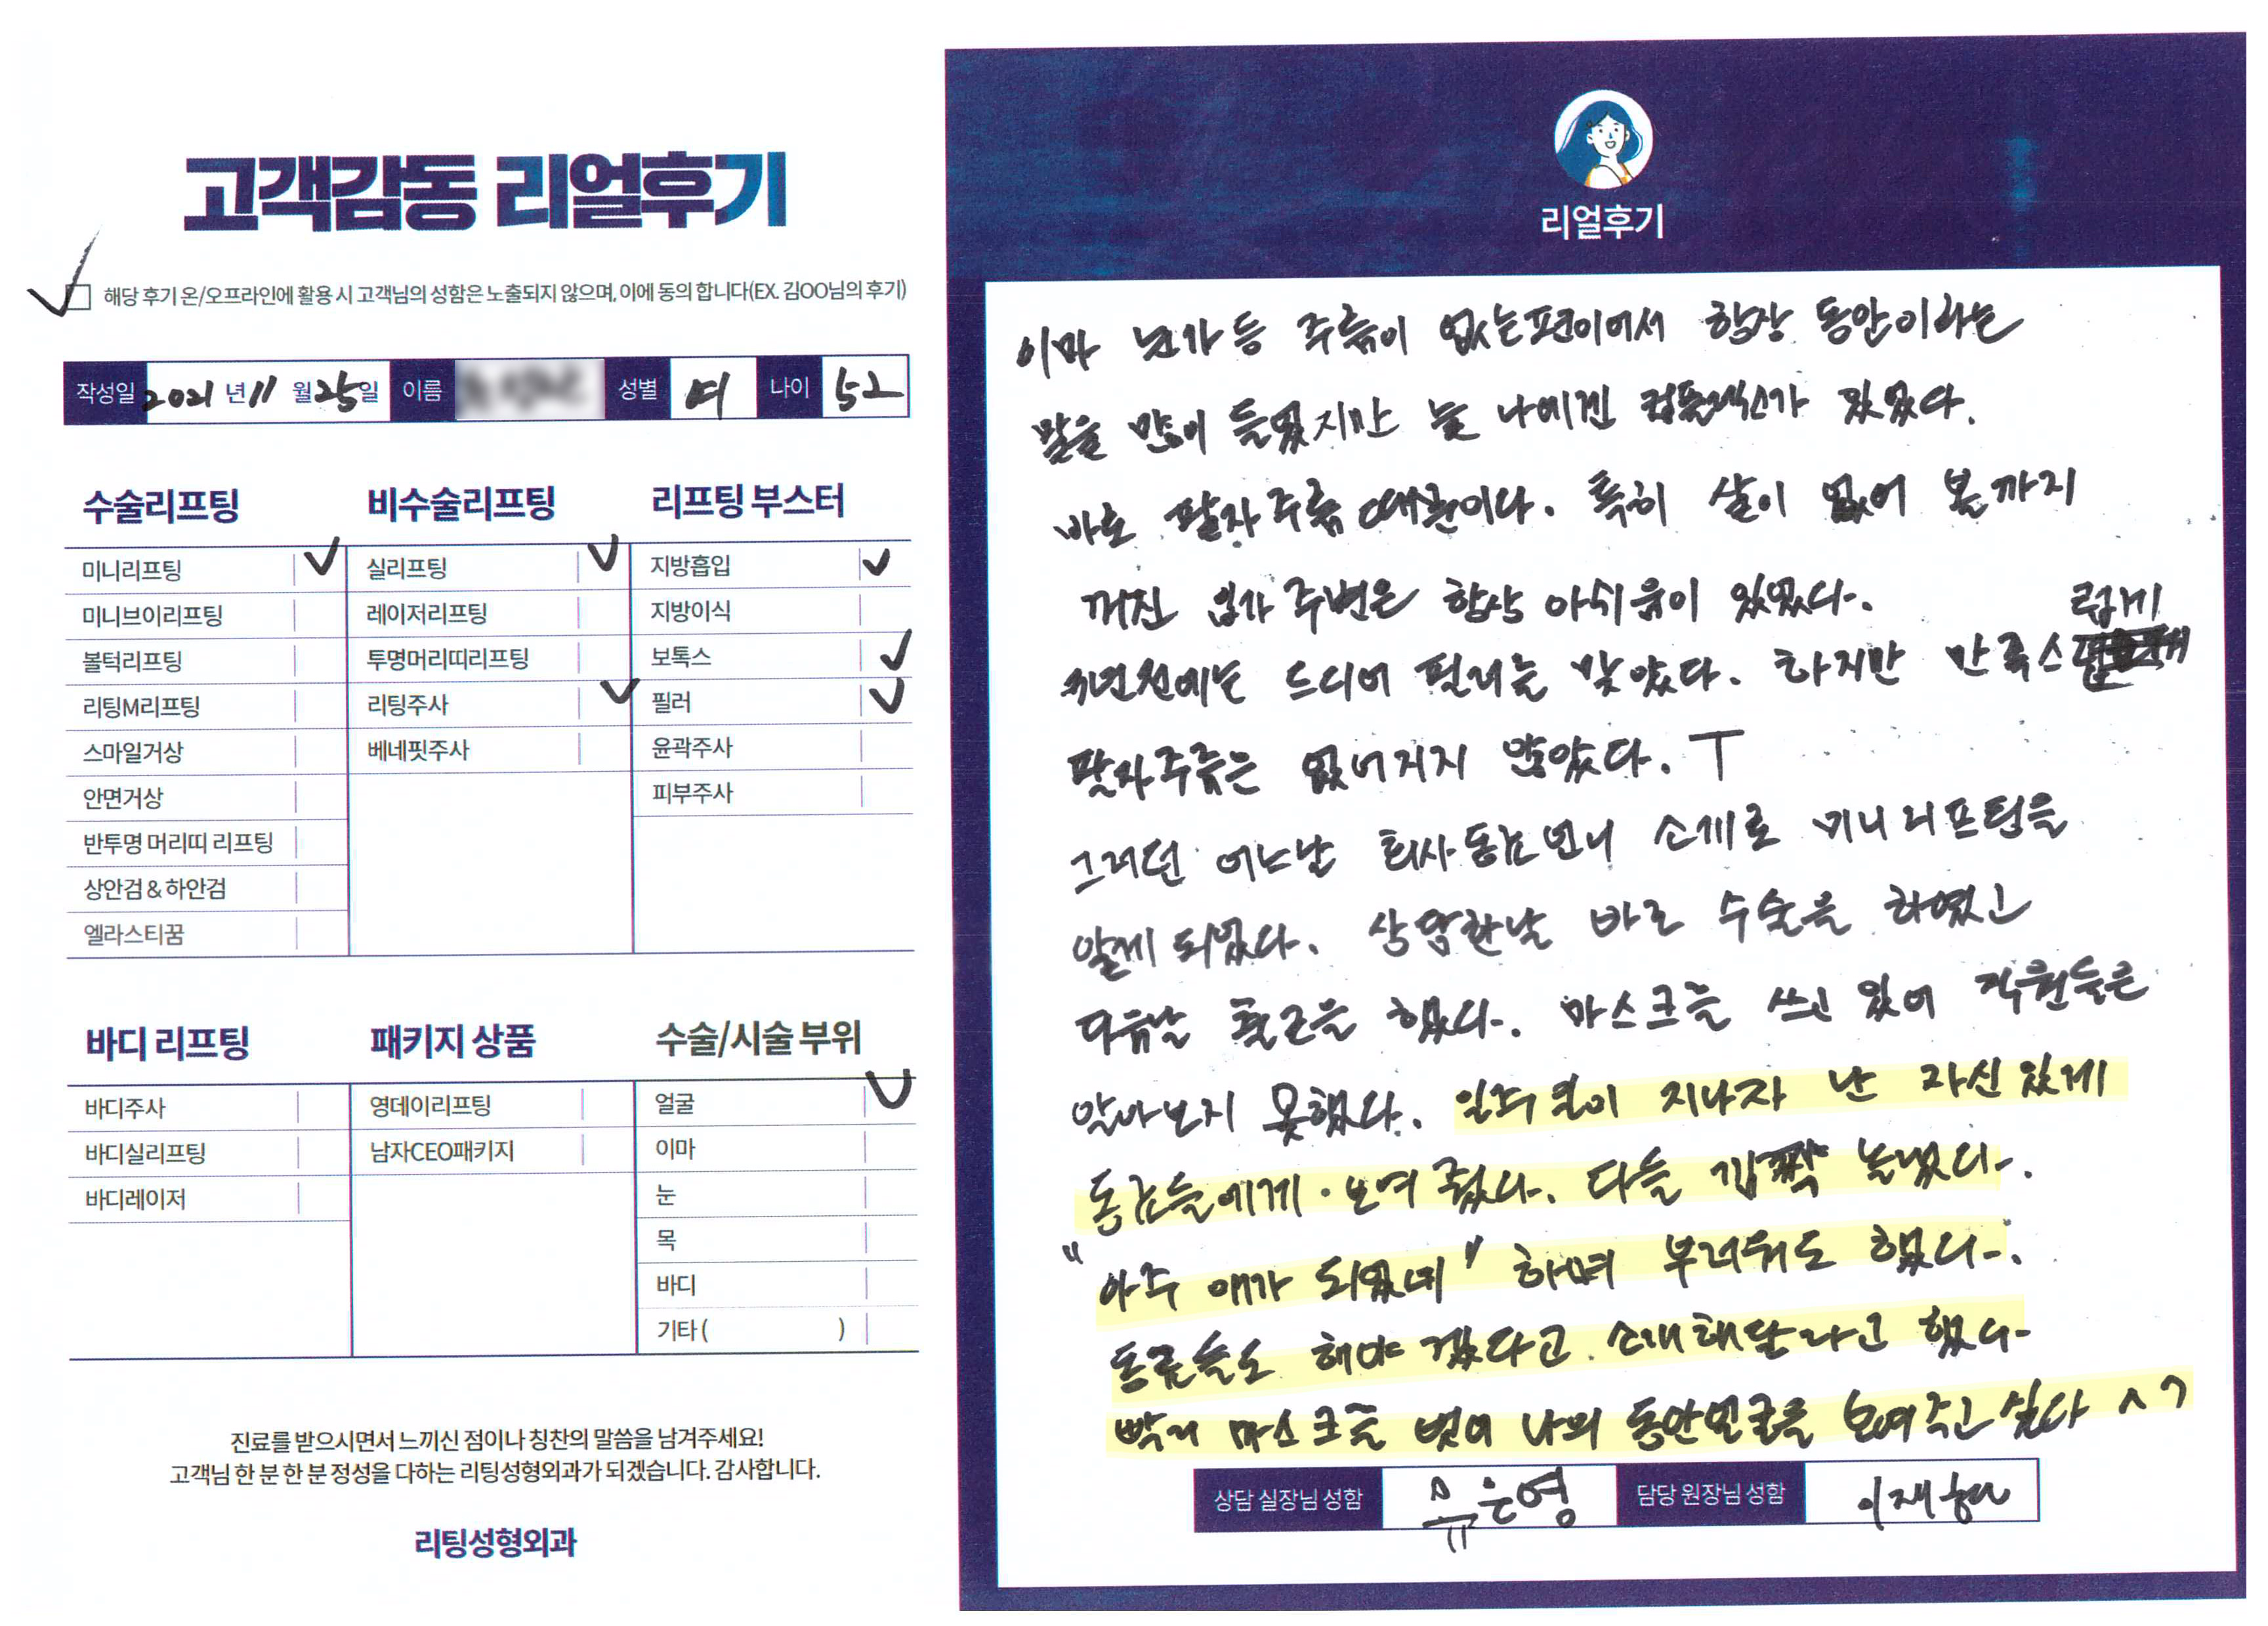 고객감동 리얼후기
해당 후기 온/오프라인에 활용 시 고객님의 성함은 노출되지 않으며, 이에 동의 합니다(EX. 김OO님의 후기)
작성일 2021 년 11 월 25 일 이름 성별 여 나이 52
수술리프팅
미니리프팅
미니브이리프팅
볼턱리프팅
리팅M리프팅
스마일거상
안면거상
반투명 머리띠 리프팅
상안검 & 하안검
엘라스티꿈
비수술리프팅
실리프팅
레이저리프팅
투명머리띠리프팅
리팅주사
베네핏주사
리프팅 부스터
지방흡입
지방이식
보톡스
필러
윤곽주사
피부주사
바디 리프팅
바디주사
바디실리프팅
바디레이저
패키지 상품
영데이리프팅
남자CEO패키지
수술/시술 부위
얼굴
이마
눈
목
바디
기타 ( )
진료를 받으시면서 느끼신 점이나 칭찬의 말씀을 남겨주세요!
고객님 한 분 한 분 정성을 다하는 리팅성형외과가 되겠습니다. 감사합니다.
리팅성형외과
리얼후기
이마 눈가 등 주름이 없는편이어서 항상 동안이라는
말을 많이 들었지만 늘 나에겐 컴플렉스가 있었다.
바로 팔자 주름 때문이다. 특히 살이 없어 볼까지
꺼진 입가 주변은 항상 아쉬움이 있었다.
전에는 드디어 필러를 맞았다. 하지만 만족스럽게
팔자주름은 없어지지 않았다. ㅜ
그러던 어느날 회사동료언니 소개로 미니리프팅을
알게 되었다. 상담한날 바로 수술을 하였고
다음날 출근을 했다. 마스크를 쓰고 있어 직원들은
알아보지 못했다. 일주일이 지나자 난 자신있게
동료들에게 보여 줬다. 다들 깜짝 놀랬다.
"아주 애가 되었네" 하며 부러워도 했다.
동료들도 해야 겠다고 소개해달라고 했다
빨리 마스크를 벗어 나의 동안얼굴을 보여주고싶다 ^^
상담 실장님 성함 유은영 담당 원장님 성함